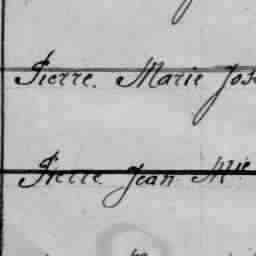 Pierre. Marie Jos
Pierre Jean Mie